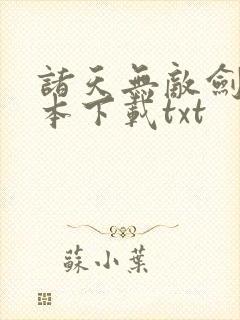 諸天無敵劍
本下載txt
蘇小葉